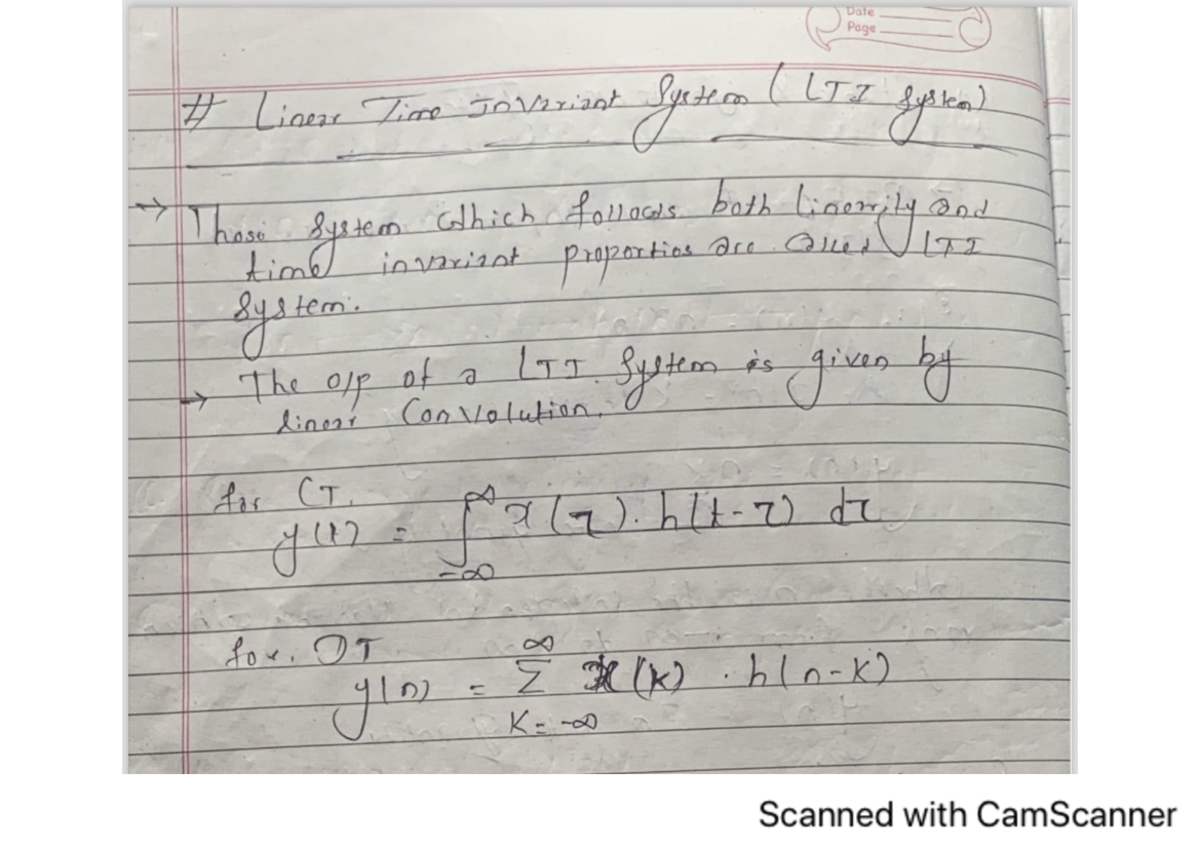 Date
Page
# Linear Time Invariant System (LTI System)
→ Those System which follows both linearity and
time invariant properties are called LTI
System.
→ The o/p of a LTI System is given by
linear Convolution.
for CT.
y(t) = ∫_{-∞}^{∞} x(τ). h(t-τ) dτ
for. DT
y(n) = Σ_{K=-∞}^{∞} x(k) . h(n-k)
Scanned with CamScanner